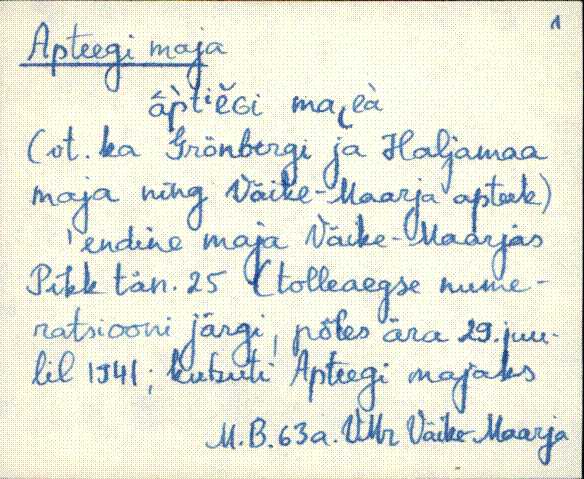 1
Apteegi maja
(vt. ka Grönbergi ja Haljamaa
maja ning Väike-Maarja apteek)
'endine maja Väike-Maarjas
Pikk tän. 25 (tolleaegse nume-
ratsiooni järgi, põles ära 29. juu-
lil 1941; kutsuti Apteegi majaks
M.B. 63a. VMr Väike-Maarja